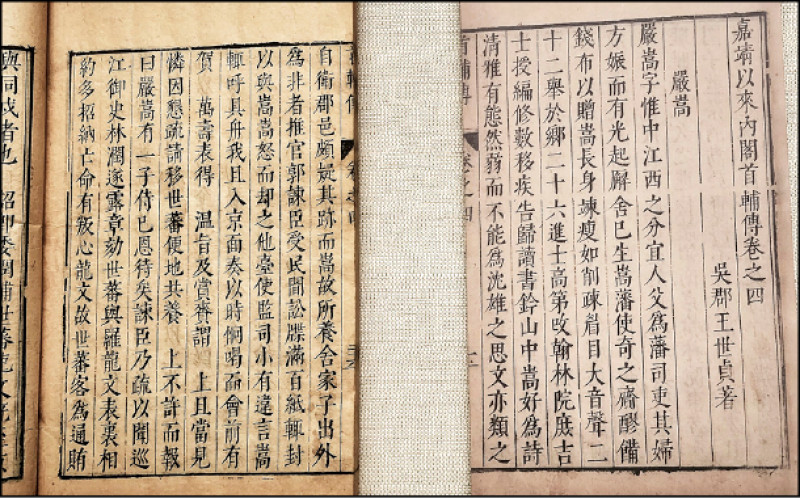 嘉靖以來內閣首輔傳卷之四
吳郡王世貞著
嚴嵩
嚴嵩字惟中江西之分宜人父為藩司吏其婦
方娠而有光起廨舍已生嵩藩使奇之齎醪備
錢布以贈嵩長身竦瘦如削疎眉目大音聲二
十二舉於鄉二十六進士高第改翰林院庶吉
士授編修數移疾告歸讀書鈐山中嵩好為詩
清雅有態然弱而不能為沈雄之思文亦類之
首輔傳 卷之四
自衛郡邑頗疑其跡而嵩故所養舍家子出外
為非者推官郭諫臣受民間訟牒滿百紙輒封
以與嵩嵩怒而却之他臺使監司小有違言嵩
輒呼具舟我且入京面奏以時恫喝而會前有
賀 萬壽表得 溫旨及賞賚謂 上且當見
憐因懇疏請移世蕃便地共養 上不許而報
曰嚴嵩有一子侍已恩待矣諫臣乃疏以聞巡
江御史林潤遂露章劾世蕃與羅龍文表裏相
約多招納亡命有叛心龍文故世蕃客為通賄
與同戍者也 詔即委潤捕世蕃龍文